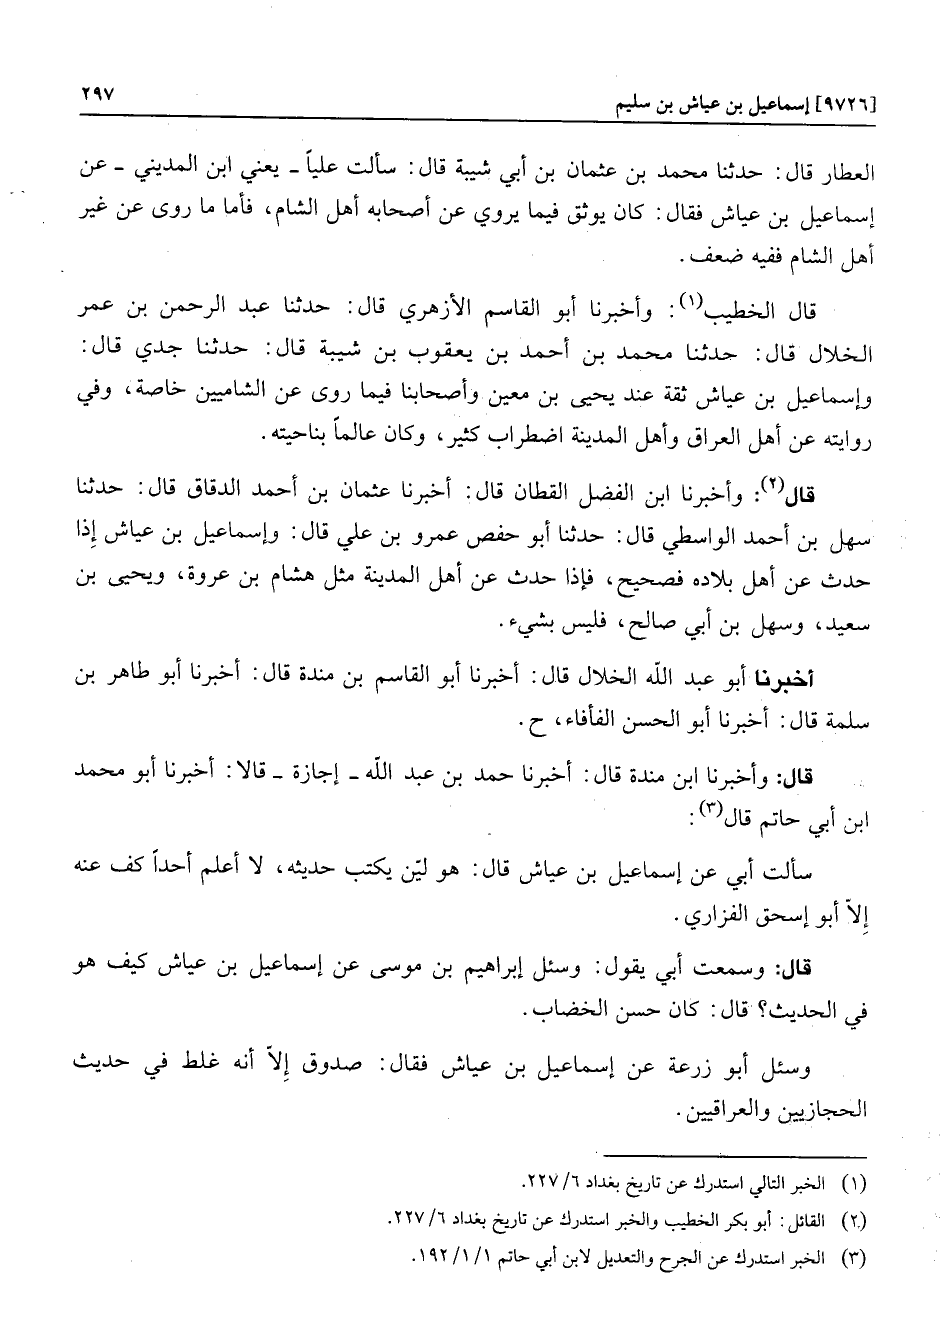 [٩٧٢٦] إسماعيل بن عياش بن سليم ٢٩٧
العطار قال: حدثنا محمد بن عثمان بن أبي شيبة قال: سألت علياً ـ يعني ابن المديني ـ عن
إسماعيل بن عياش فقال: كان يوثق فيما يروي عن أصحابه أهل الشام، فأما ما روى عن غير
أهل الشام ففيه ضعف.
قال الخطيب(١): وأخبرنا أبو القاسم الأزهري قال: حدثنا عبد الرحمن بن عمر
الخلال قال: حدثنا محمد بن أحمد بن يعقوب بن شيبة قال: حدثنا جدي قال:
وإسماعيل بن عياش ثقة عند يحيى بن معين وأصحابنا فيما روى عن الشاميين خاصة، وفي
روايته عن أهل العراق وأهل المدينة اضطراب كثير، وكان عالماً بناحيته.
قال(٢): وأخبرنا ابن الفضل القطان قال: أخبرنا عثمان بن أحمد الدقاق قال: حدثنا
سهل بن أحمد الواسطي قال: حدثنا أبو حفص عمرو بن علي قال: وإسماعيل بن عياش إذا
حدث عن أهل بلاده فصحيح، فإذا حدث عن أهل المدينة مثل هشام بن عروة، ويحيى بن
سعيد، وسهل بن أبي صالح، فليس بشيء.
أخبرنا أبو عبد الله الخلال قال: أخبرنا أبو القاسم بن مندة قال: أخبرنا أبو طاهر بن
سلمة قال: أخبرنا أبو الحسن الفأفاء، ح.
قال: وأخبرنا ابن مندة قال: أخبرنا حمد بن عبد الله ـ إجازة ـ قالا: أخبرنا أبو محمد
ابن أبي حاتم قال(٣):
سألت أبي عن إسماعيل بن عياش قال: هو ليّن يكتب حديثه، لا أعلم أحداً كف عنه
إلاّ أبو إسحق الفزاري.
قال: وسمعت أبي يقول: وسئل إبراهيم بن موسى عن إسماعيل بن عياش كيف هو
في الحديث؟ قال: كان حسن الخضاب.
وسئل أبو زرعة عن إسماعيل بن عياش فقال: صدوق إلاّ أنه غلط في حديث
الحجازيين والعراقيين.
(١) الخبر التالي استدرك عن تاريخ بغداد ٦/ ٢٢٧.
(٢) القائل: أبو بكر الخطيب والخبر استدرك عن تاريخ بغداد ٦/ ٢٢٧.
(٣) الخبر استدرك عن الجرح والتعديل لابن أبي حاتم ١/ ١/ ١٩٢.